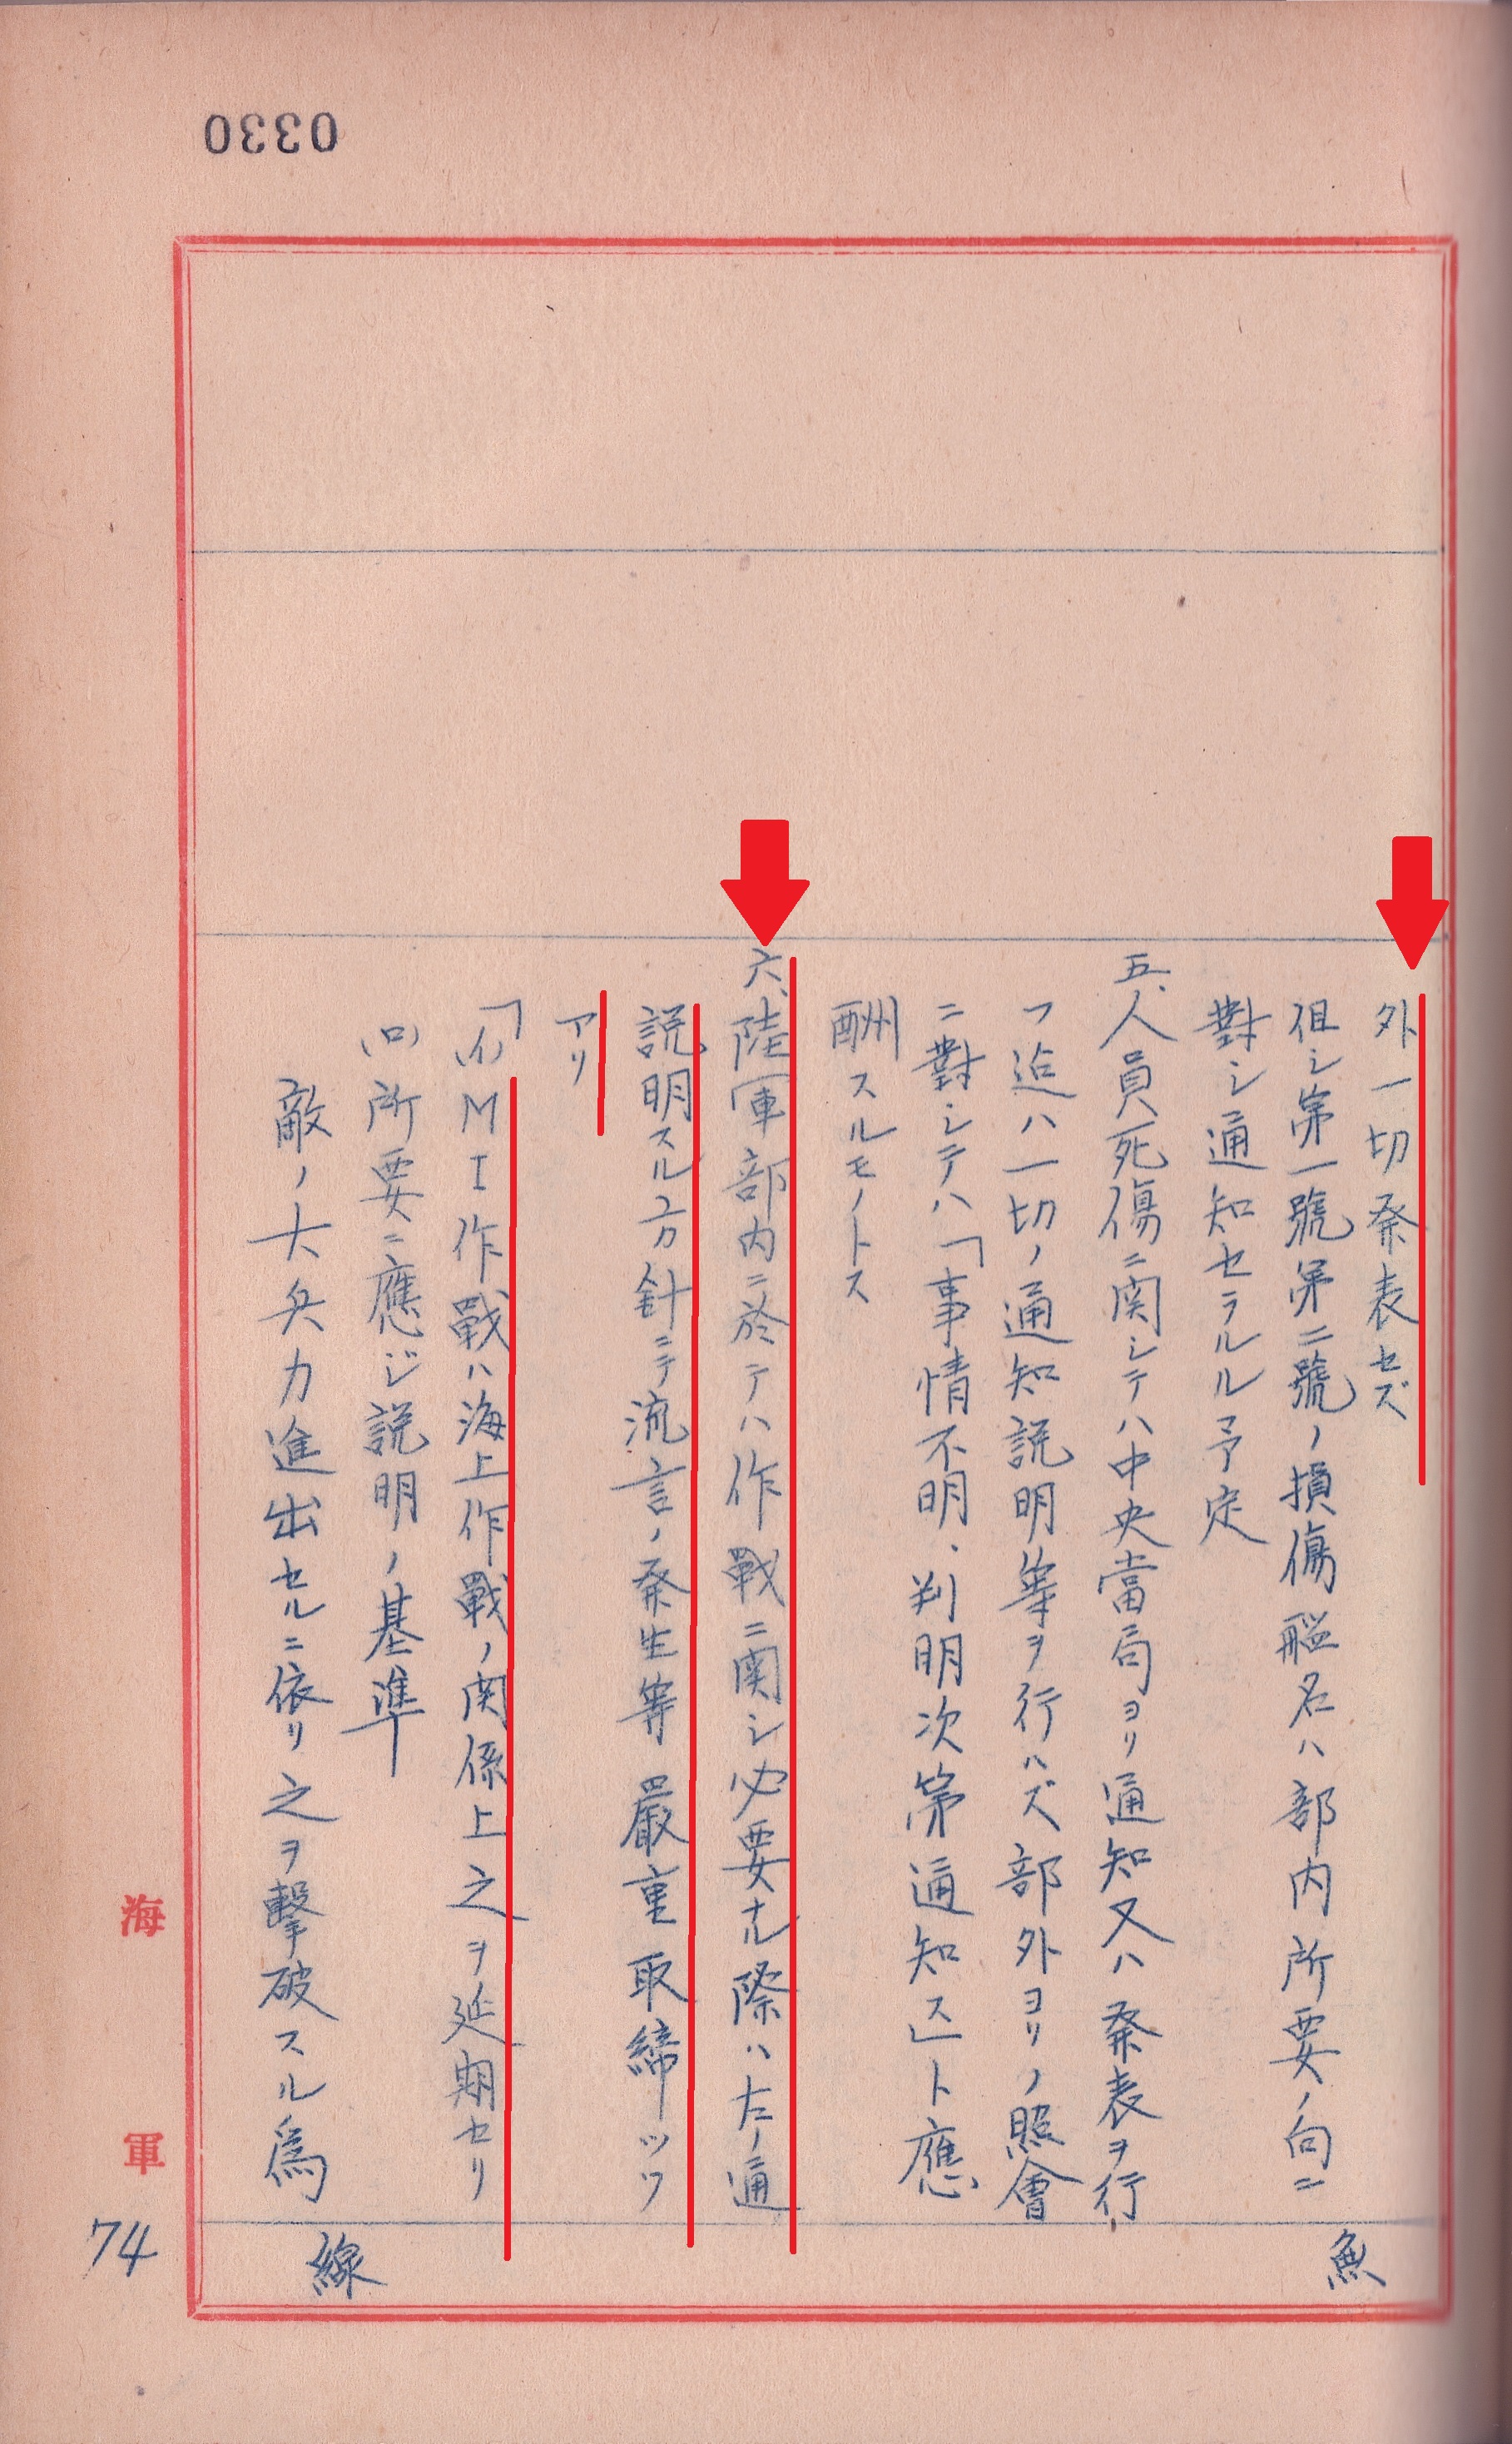 0330
外一切発表セズ
但シ第一號第二號ノ損傷艦名ハ部内所要ノ向ニ
對シ通知セラルル予定
五、人員死傷ニ関シテハ中央當局ヨリ通知又ハ発表ヲ行
フ迄ハ一切ノ通知説明等ヲ行ハズ部外ヨリノ照會
ニ對シテハ「事情不明、判明次第通知ス」ト應
酬スルモノトス
六、陸軍部内ニ於テハ作戰ニ関シ必要ナル際ハ左ノ通
説明スル方針ニテ流言ノ発生等嚴重取締ツツ
アリ
「(イ)MI作戰ハ海上作戰ノ関係上之ヲ延期セリ
(ロ)所要ニ應ジ説明ノ基準
敵ノ大兵力進出セルニ依リ之ヲ撃破スル為
魚
線
海軍
74